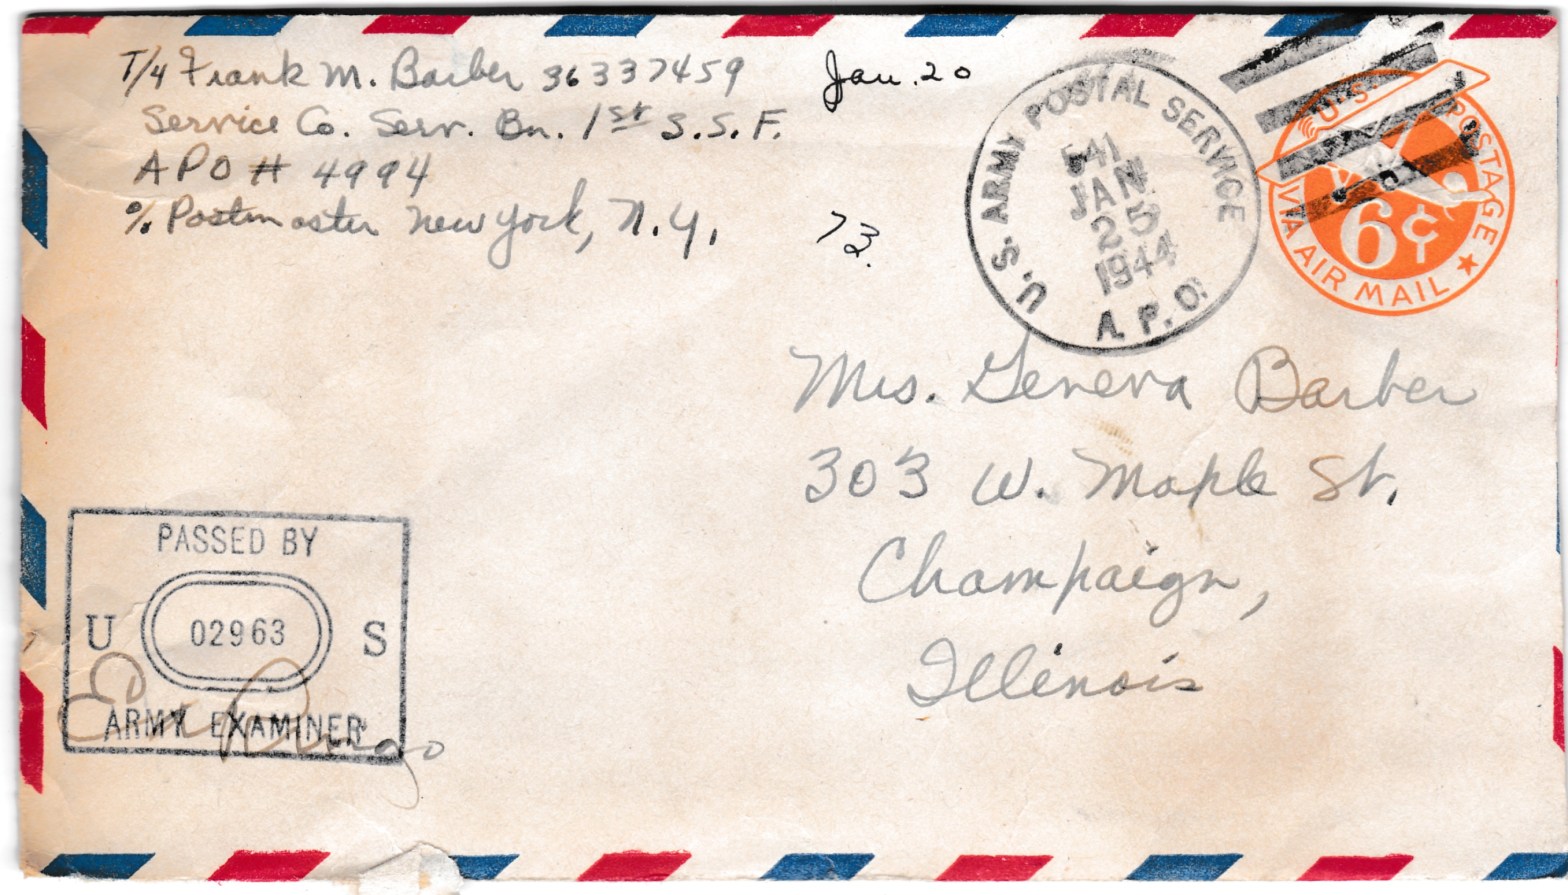 T/4 Frank M. Barber 36337459
Service Co. Serv. Bn. 1st S.S.F.
APO # 4994
% Postmaster New York, N.Y.
Jan. 20
73.
U.S. ARMY POSTAL SERVICE
JAN
25
1944
A.P.O.
U.S. POSTAGE
6¢
VIA AIR MAIL
Mrs. Geneva Barber
303 W. Maple St.
Champaign,
Illinois
PASSED BY
U 02963 S
ARMY EXAMINER